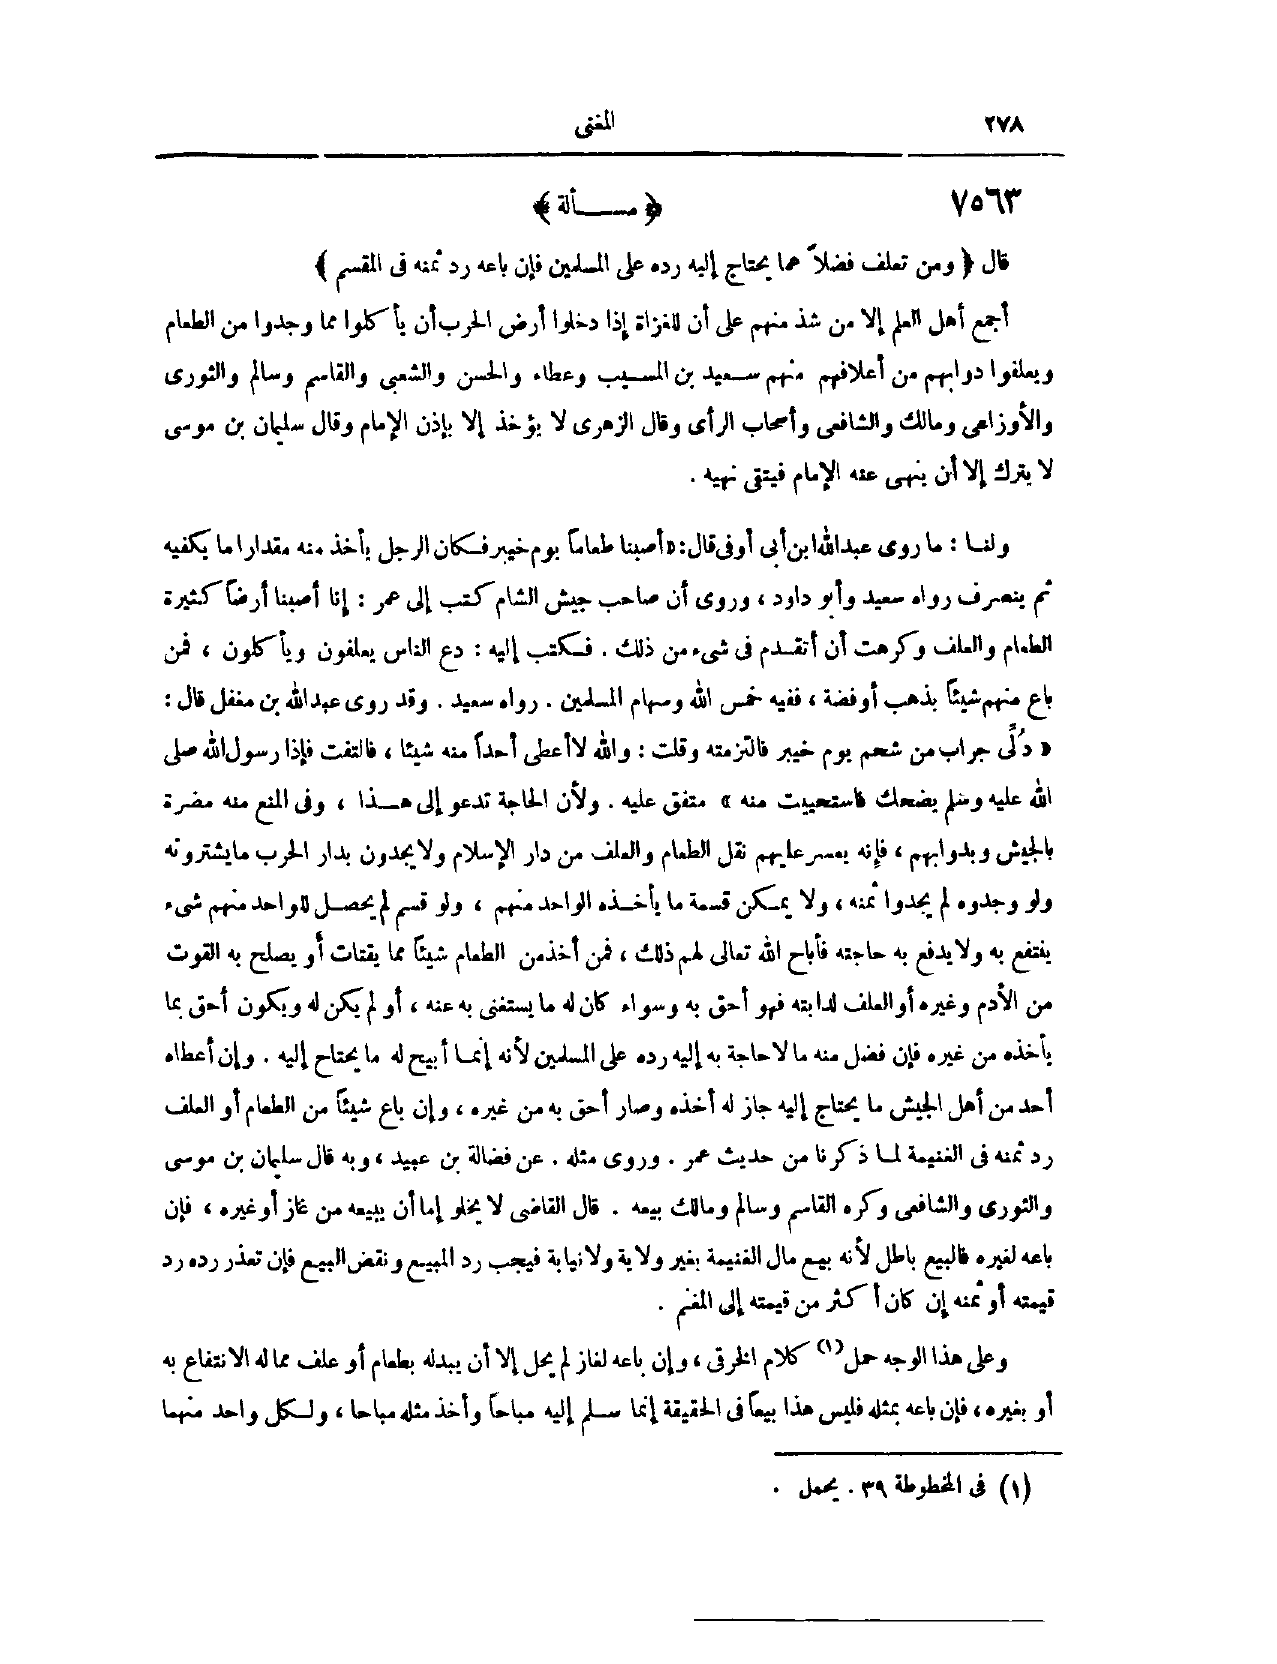 ٢٧٨
المغنى
٧٥٦٣
﴿ مســـألة ﴾
قال ﴿ ومن تعلف فضلاً عما يحتاج إليه رده على المسلمين فإن باعه رد ثمنه فى المقسم ﴾
أجمع أهل العلم إلا من شذ منهم على أن للغزاة إذا دخلوا أرض الحرب أن يأكلوا مما وجدوا من الطعام
ويعلفوا دوابهم من أعلافهم منهم سعيد بن المسيب وعطاء والحسن والشعبى والقاسم وسالم والثورى
والأوزاعى ومالك والشافعى وأصحاب الرأى وقال الزهرى لا يؤخذ إلا بإذن الإمام وقال سليمان بن موسى
لا يترك إلا أن ينهى عنه الإمام فيتقى نهيه .
ولنــا : ما روى عبدالله ابن أبى أوفى قال : «أصبنا طعاماً يوم خيبر فكان الرجل يأخذ منه مقدارا ما يكفيه
ثم ينصرف رواه سعيد وأبو داود ، وروى أن صاحب جيش الشام كتب إلى عمر : إنا أصبنا أرضاً كثيرة
الطعام والعلف وكرهت أن أتقـدم فى شىء من ذلك . فكتب إليه : دع الناس يعلفون ويأكلون ، فمن
باع منهم شيئاً بذهب أوفضة ، ففيه خمس الله وسهام المسلمين . رواه سعيد . وقد روى عبدالله بن مغفل قال :
« دُلِّى جراب من شحم يوم خيبر فالتزمته وقلت : والله لا أعطى أحداً منه شيئا ، فالتفت فإذا رسول الله صلى
الله عليه وسلم يضحك فاستحييت منه » متفق عليه . ولأن الحاجة تدعو إلى هــذا ، وفى المنع منه مضرة
بالجيش وبدوابهم ، فإنه يعسر عليهم نقل الطعام والعلف من دار الإسلام ولا يجدون بدار الحرب ما يشترونه
ولو وجدوه لم يجدوا ثمنه ، ولا يمـكن قسمة ما يأخــذه الواحد منهم ، ولو قسم لم يحصل للواحد منهم شىء
ينتفع به ولا يدفع به حاجته فأباح الله تعالى لهم ذلك ، فمن أخذ من الطعام شيئاً مما يقتات أو يصلح به القوت
من الأدم وغيره أو العلف لدابته فهو أحق به وسواء كان له ما يستغنى به عنه ، أو لم يكن له ويكون أحق بما
يأخذه من غيره فإن فضل منه ما لا حاجة به إليه رده على المسلمين لأنه إنمـا أبيح له ما يحتاج إليه . وإن أعطاه
أحد من أهل الجيش ما يحتاج إليه جاز له أخذه وصار أحق به من غيره ، وإن باع شيئاً من الطعام أو العلف
رد ثمنه فى الغنيمة لمـا ذكرنا من حديث عمر . وروى مثله . عن فضالة بن عبيد ، وبه قال سليمان بن موسى
والثورى والشافعى وكره القاسم وسالم ومالك بيعه . قال القاضى لا يخلو إما أن يبيعه من غاز أو غيره ، فإن
باعه لغيره فالبيع باطل لأنه بيع مال الغنيمة بغير ولاية ولا نيابة فيجب رد المبيع ونقض البيع فإن تعذر رده رد
قيمته أو ثمنه إن كان أكثر من قيمته إلى المغنم .
وعلى هذا الوجه حمل(١) كلام الخرقى ، وإن باعه لغاز لم يحل إلا أن يبدله بطعام أو علف مما له الانتفاع به
أو بغيره ، فإن باعه بمثله فليس هذا بيعاً فى الحقيقة إنما سلم إليه مباحاً وأخذ مثله مباحا ، ولكل واحد منهما
(١) فى المخطوطة ٣٩ . يحمل .